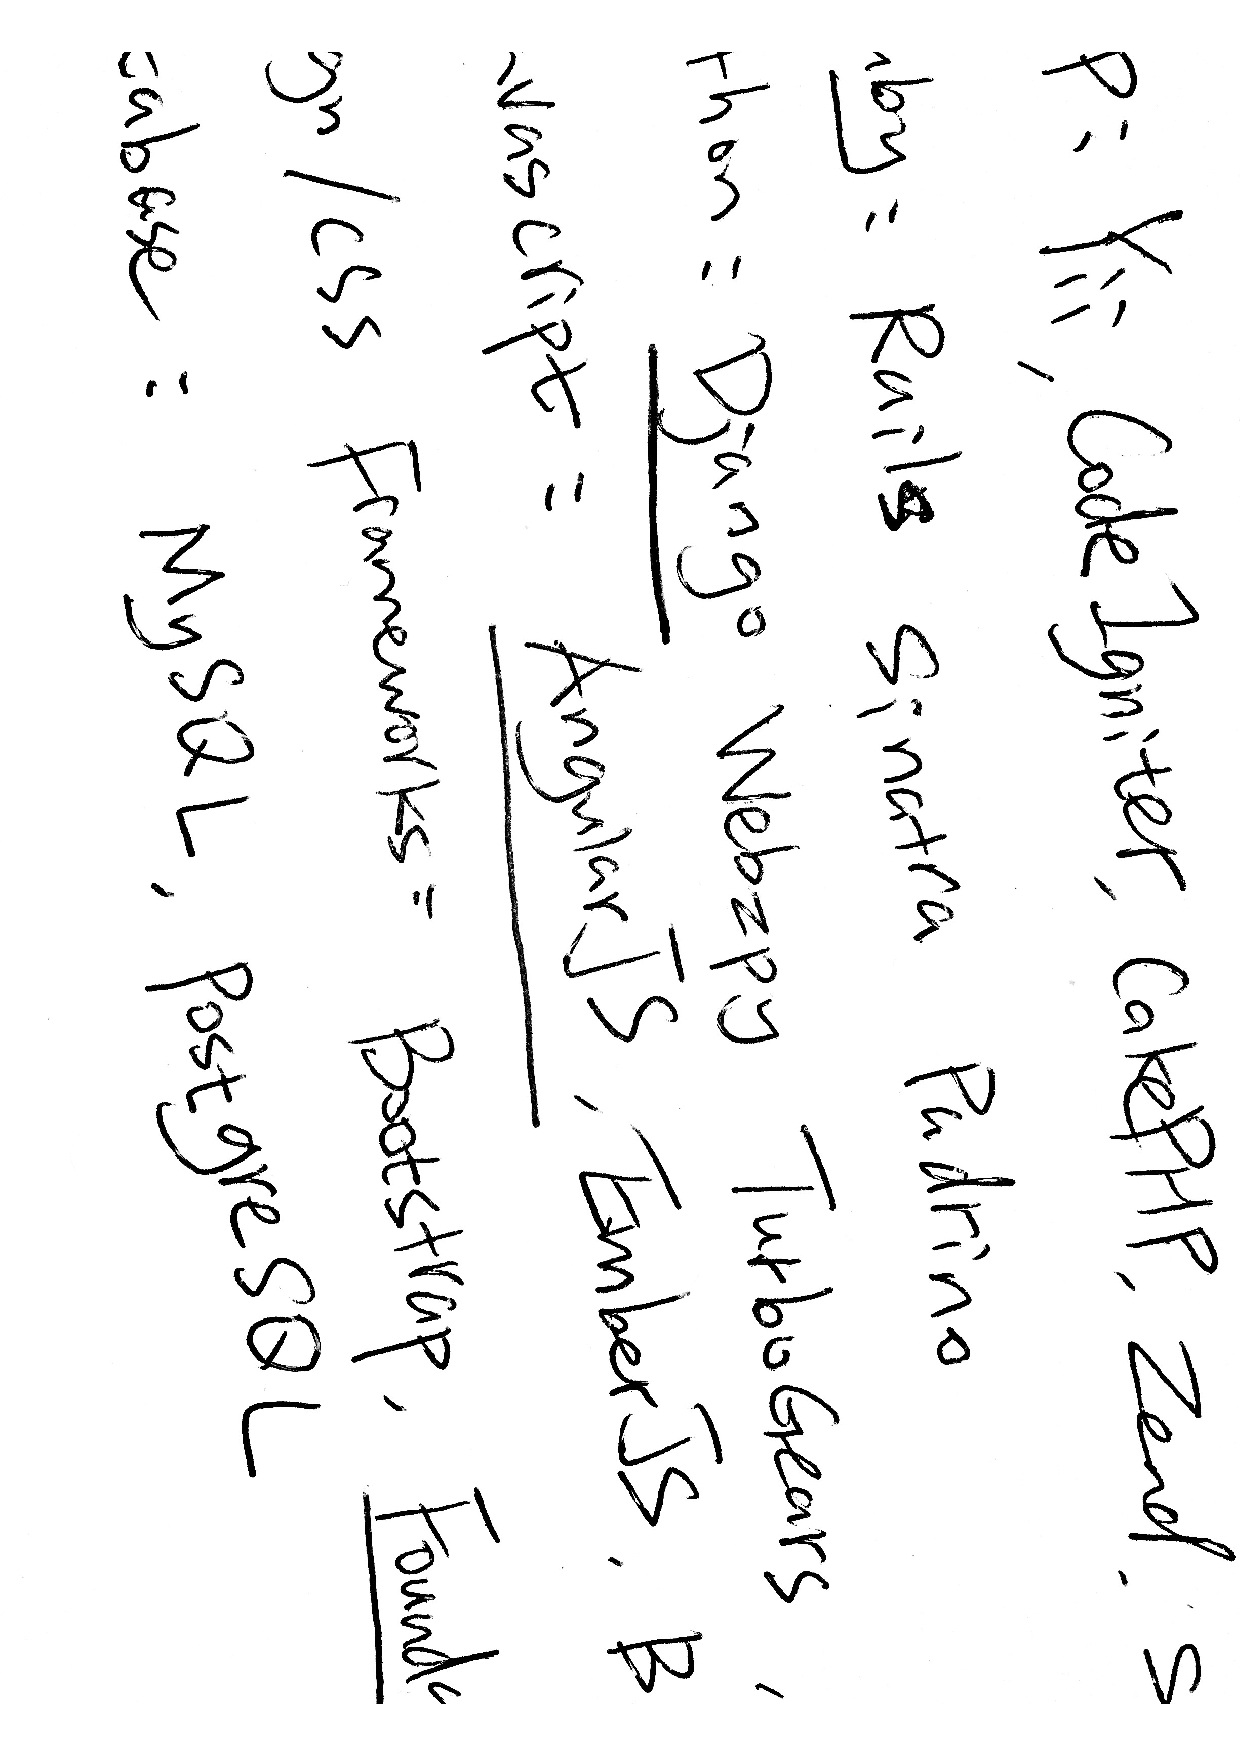 P: Yii, CodeIgniter, CakePHP, Zend. S
uby: Rails Sinatra Padrino
thon: Django Webzpy TurboGears,
vascript: AngularJS, EmberJS, B
gn/css Frameworks: Bootstrap, Founda
tabase: MySQL, PostgreSQL